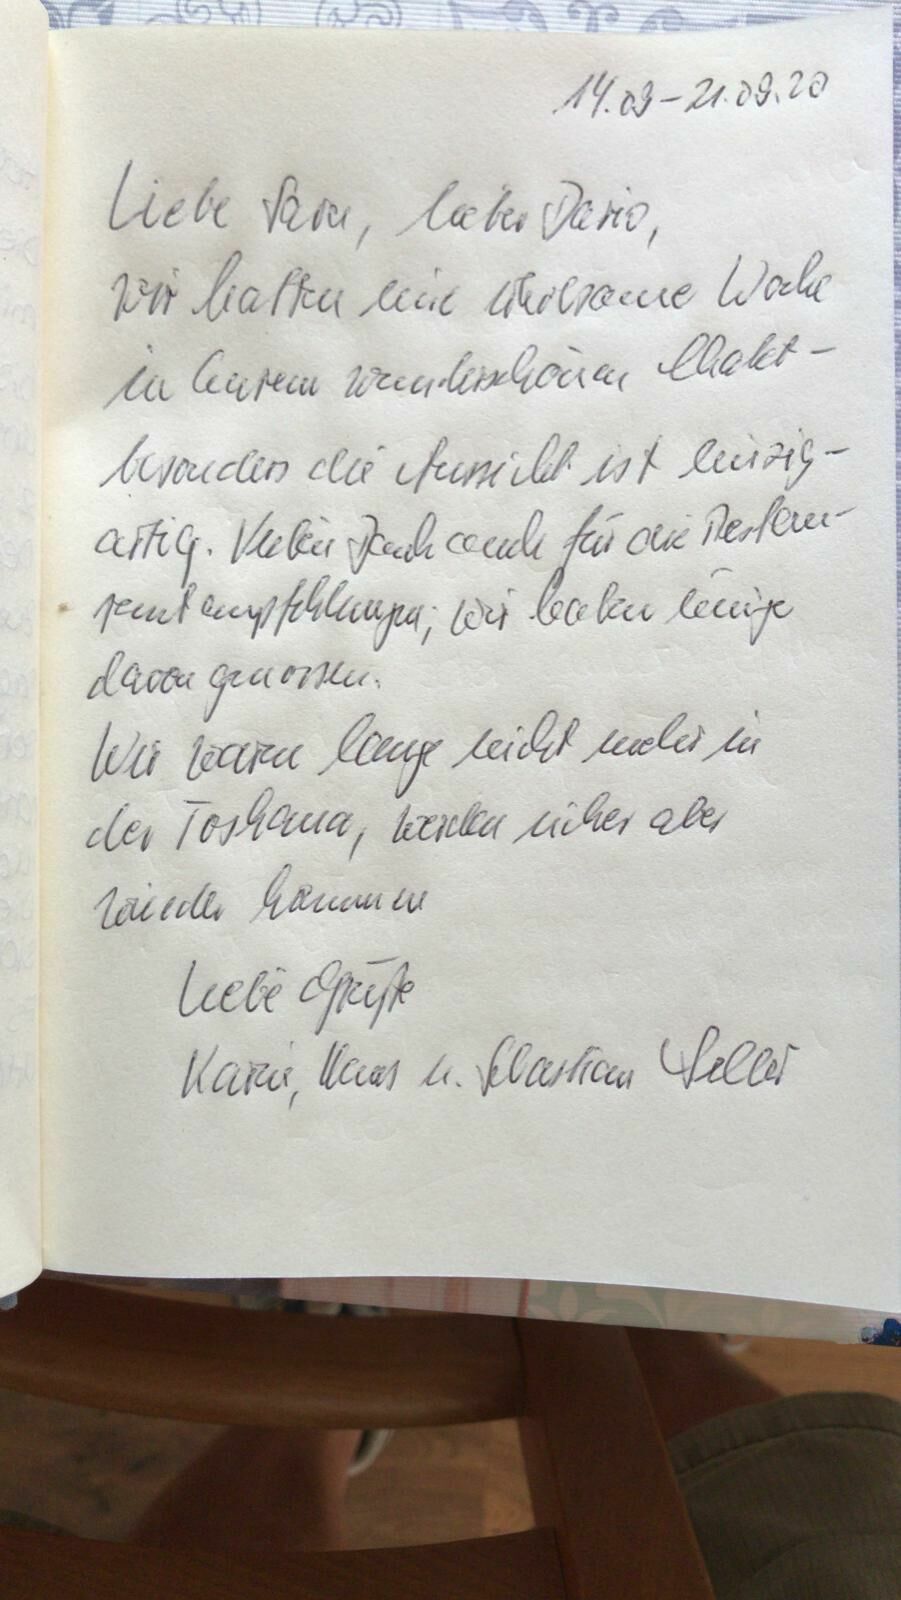 14.09 - 21.09.20
Liebe Sara, lieber Dario,
wir hatten eine erholsame Woche
in Eurem wunderschönen Chalet -
besonders die Aussicht ist einzig-
artig. Vielen Dank auch für die Restau-
rantempfehlungen, wir haben einige
davon genossen.
Wir waren lange nicht mehr in
der Toskana, werden sicher aber
wieder kommen
Liebe Grüße
Karin, u. Sebastian